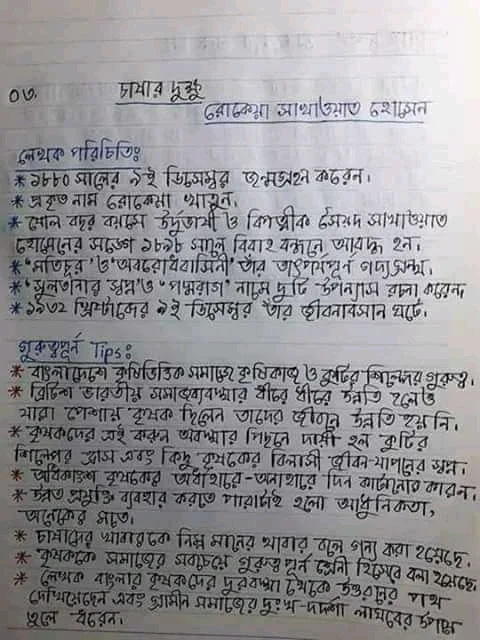 ০৩. চাষার দুক্ষু
রোকেয়া সাখাওয়াত হোসেন
লেখক পরিচিতিঃ
* ১৮৮০ সালের ৯ই ডিসেম্বর জন্মগ্রহন করেন।
* প্রকৃত নাম রোকেয়া খাতুন।
* ষোল বছর বয়সে উর্দুভাষী ও বিপত্নীক সৈয়দ সাখাওয়াত
হোসেনের সঙ্গে ১৮৯৮ সালে বিবাহ বন্ধনে আবদ্ধ হন।
* 'মতিচূর' ও 'অবরোধবাসিনী' তাঁর তাৎপর্যপূর্ন গদ্যগ্রন্থ।
* 'সুলতানার স্বপ্ন' ও 'পদ্মরাগ' নামে দুটি উপন্যাস রচনা করেন।
* ১৯৩২ খ্রিস্টাব্দের ৯ই ডিসেম্বর তাঁর জীবনাবসান ঘটে।
গুরুত্বপূর্ন Tips:
* বাংলাদেশে কৃষিভিত্তিক সমাজে কৃষিকাজ ও কুটির শিল্পের গুরুত্ব।
* ব্রিটিশ ভারতীয় সমাজব্যবস্থার ধীরে ধীরে উন্নতি হলেও
যারা পেশায় কৃষক ছিলেন তাদের জীবনে উন্নতি হয়নি।
* কৃষকদের এই করুন অবস্থার পিছনে দায়ী হল কুটির
শিল্পের হ্রাস এবং কিছু কৃষকের বিলাসী জীবন-যাপনের স্বপ্ন।
* অধিকাংশ কৃষকের অর্ধাহারে-অনাহারে দিন কাটানোর কারন।
* উন্নত প্রযুক্তি ব্যবহার করতে পারাটাই হলো আধুনিকতা,
অনেকের মতে।
* চাষাদের খাবারকে নিম্ন মানের খাবার বলে গন্য করা হয়েছে।
* কৃষককে সমাজের সবচেয়ে গুরুত্বপূর্ন শ্রেনী হিসেবে বলা হয়েছে।
* লেখক বাংলার কৃষকদের দুরবস্থা থেকে উত্তরনের পথ
দেখিয়েছেন এবং গ্রামীন সমাজের দুঃখ-দুর্দশা লাঘবের উপায়
তুলে ধরেন।